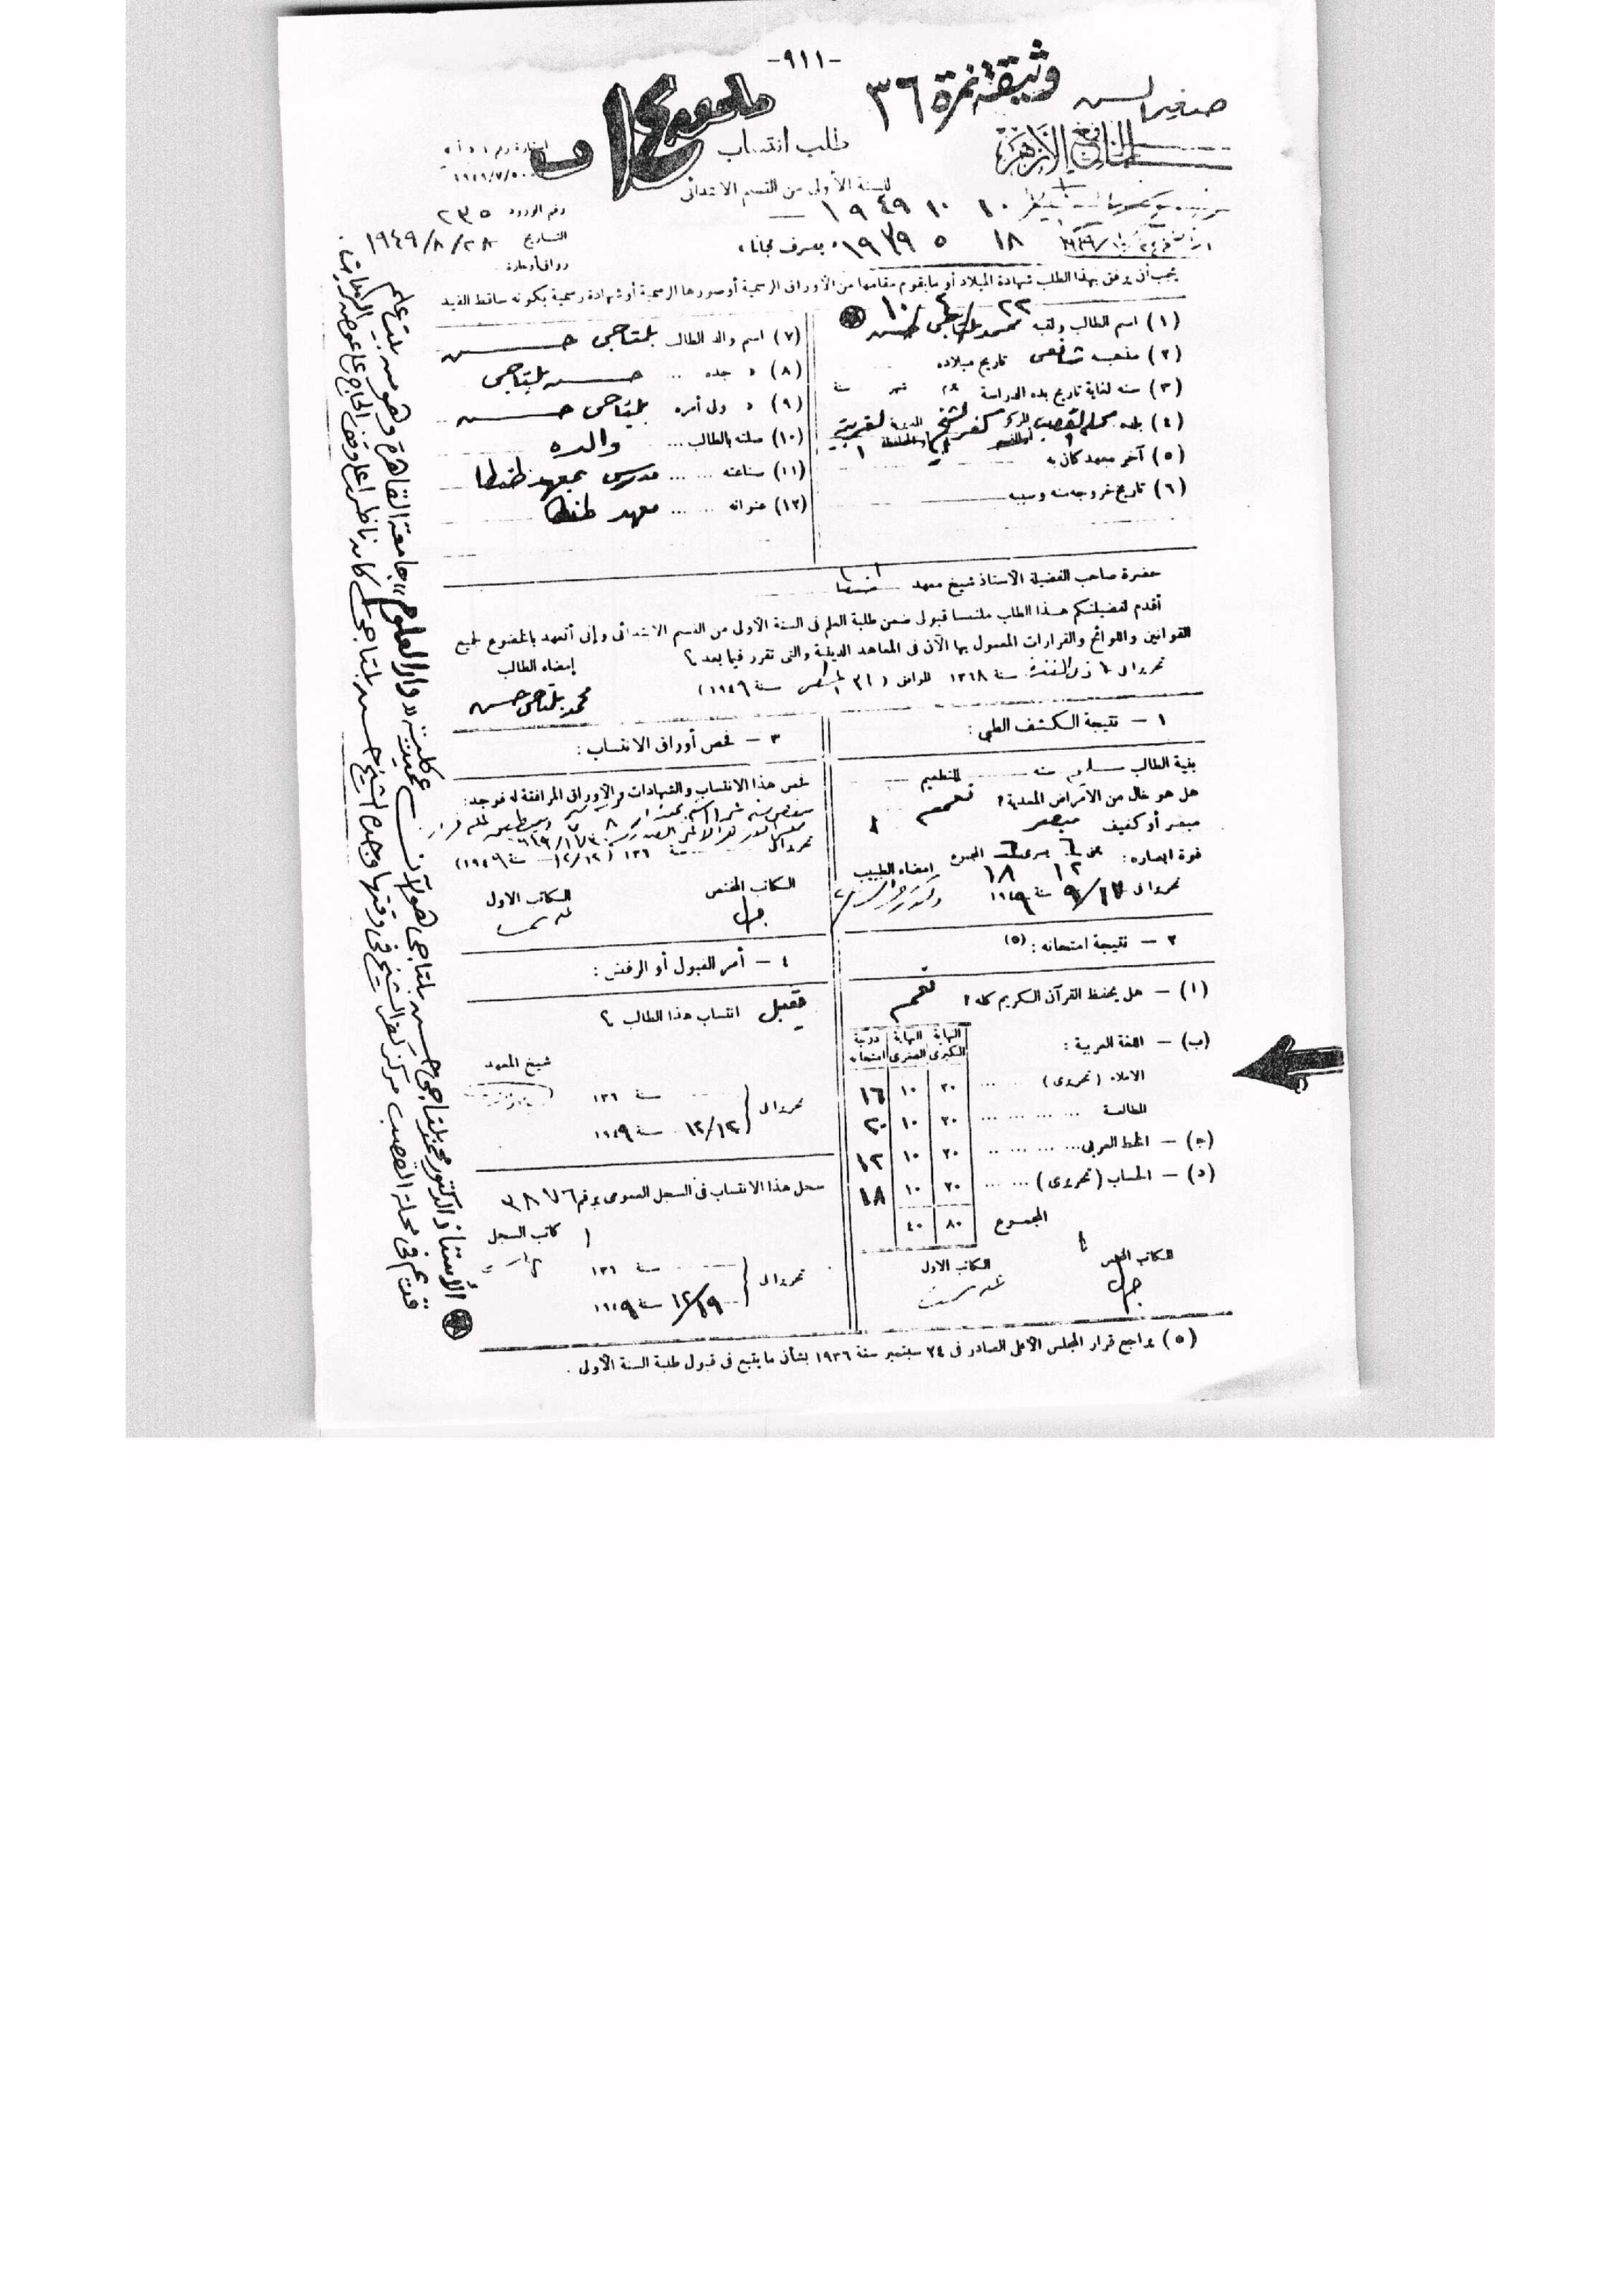 -٩١١-
وثيقة نمرة ٣٦
صغير السن
الجامع الأزهر
طلب انتساب
للسنة الأولى من القسم الابتدائى
رقم الورود ٢٣٥
التاريخ ٢٨/٨/١٩٤٩
١٠ ١٠ ١٩٤٩
١٨ ٥ ١٩٣٩
« يصرف مجانا »
يجب أن يرفق بهذا الطلب شهادة الميلاد أو ما يقوم مقامها من الأوراق الرسمية أو صورها الرسمية أو شهادة رسمية بكونه ساقط القيد
٢٢ ٤ ١٠
(١) اسم الطالب ولقبه محمد بلتاجى حسن
(٢) مذهبه شافعى تاريخ ميلاده
(٣) سنه لغاية تاريخ بدء الدراسة شهر سنة
(٤) بلده محلة القصب المركز كفر الشيخ المديرية الغربية
(٥) آخر معهد كان به
(٦) تاريخ خروجه منه وسببه
(٧) اسم والد الطالب بلتاجى حسن
(٨) » جده ... حسن بلتاجى
(٩) » ولى أمره بلتاجى حسن
(١٠) صلته بالطالب ... والده
(١١) صناعته ... مدرس بمعهد طنطا
(١٢) عنوانه ... معهد طنطا
حضرة صاحب الفضيلة الأستاذ شيخ معهد طنطا
أقدم لفضيلتكم هذا الطلب ملتمسا قبولى ضمن طلبة العلم فى السنة الأولى من القسم الابتدائى وإنى أتعهد بالخضوع لجميع
القوانين واللوائح والقرارات المعمول بها الآن فى المعاهد الدينية والتى تقرر فيما بعد ؟
تحريرا فى ذى القعدة سنة ١٣٦٨ الموافق ( ٢١ أغسطس سنة ١٩٤٩ )
إمضاء الطالب
محمد بلتاجى حسن
١ — نتيجة الكشف الطبى :
بنية الطالب سليم سنه للتطعيم
هل هو خال من الأمراض المعدية ؟ نعم
مبصر أو كفيف مبصر
قوة ابصاره : يمنى ٦ يسرى ٦ المجموع
١٢ ١٨
إمضاء الطبيب
تحريرا فى ١٧/٩ سنة ١٩٤٩
٢ — نتيجة امتحانه : (٥)
(ا) — هل يحفظ القرآن الكريم كله ؟ نعم
النهاية الكبرى النهاية الصغرى درجة امتحانه
(ب) — اللغة العربية :
الاملاء ( تحريرى ) ... ٢٠ ١٠ ١٦
المطالعة ... ٢٠ ١٠ ٢٠
(ج) — الخط العربى ... ٢٠ ١٠ ١٢
(د) — الحساب ( تحريرى ) ... ٢٠ ١٠ ١٨
المجموع ٨٠ ٤٠
الكاتب المختص
الكاتب الاول
٣ — فحص أوراق الانتساب :
فحص هذا الانتساب والشهادات والأوراق المرافقة له فوجد :
تحريرا فى سنة ١٣٦ ( ١٢/١٢ سنة ١٩٤٩ )
الكاتب المختص
الكاتب الاول
٤ — أمر القبول أو الرفض :
يقبل انتساب هذا الطالب ؟
شيخ المعهد
تحريرا فى سنة ١٣٦
١٢/١٢ سنة ١٩٤٩
سجل هذا الانتساب فى السجل العمومى برقم ٣٨٧٦
كاتب السجل
تحريرا فى سنة ١٣٦
١٩/١٢ سنة ١٩٤٩
(٥) يراجع قرار المجلس الأعلى الصادر فى ٢٤ سبتمبر سنة ١٩٣٦ بشأن ما يتبع فى قبول طلبة السنة الأولى .
الأستاذ الدكتور محمد بلتاجى حسن بلتاجى هو الآن عميد كلية « دار العلوم » جامعة القاهرة وهو من بيت علم
قديم فى محلة القصب مركز كفر الشيخ فى وقتها وجده الشيخ حسن بلتاجى كان ناظرا على وقف الحاج على